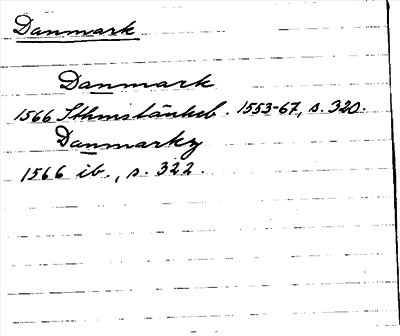 Danmark
Danmark
1566 Sthmstänkeb. 1553-67, s. 320.
Danmarky
1566 ib., s. 322.